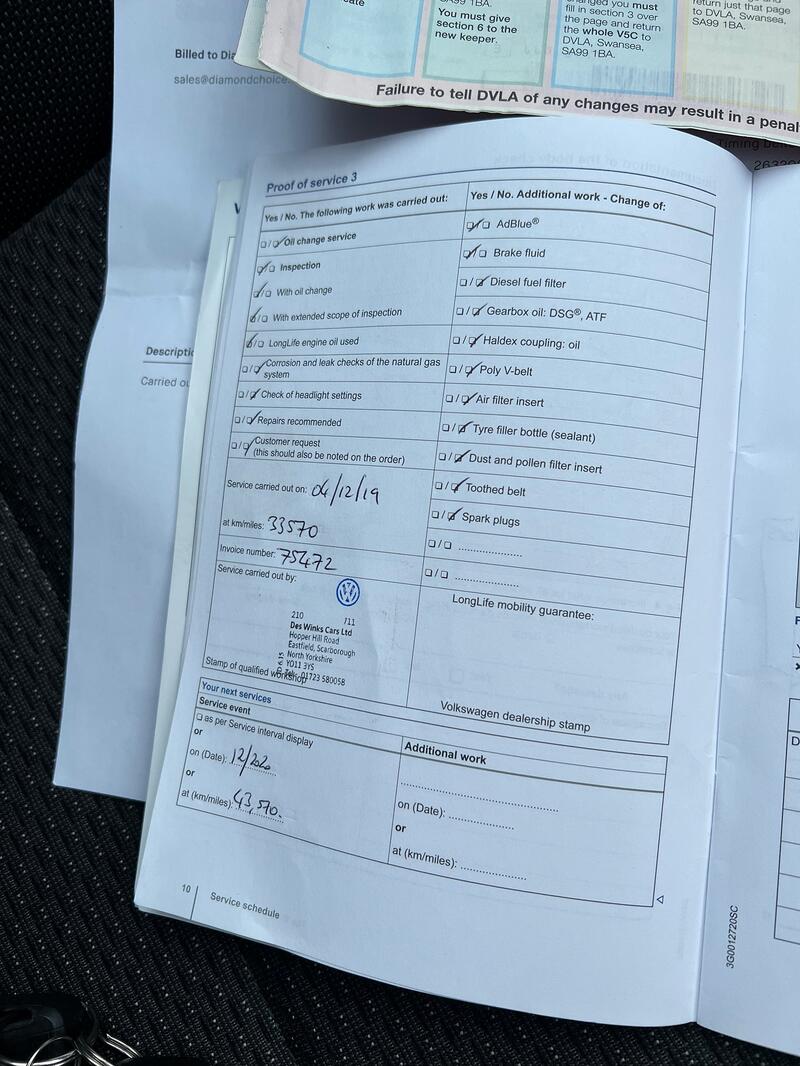 cate
SA99 1BA.
You must give
section 6 to the
new keeper.
changed you must
fill in section 3 over
the page and return
the whole V5C to
DVLA, Swansea,
SA99 1BA.
return just that page
to DVLA, Swansea,
SA99 1BA.
Failure to tell DVLA of any changes may result in a penal
Billed to Dia
sales@diamondchoice.
Descriptio
Carried ou
Proof of service 3
Yes / No. The following work was carried out:
☐/☑ Oil change service
☑/☐ Inspection
☑/☐ With oil change
☑/☐ With extended scope of inspection
☑/☐ LongLife engine oil used
☐/☑ Corrosion and leak checks of the natural gas
system
☐/☑ Check of headlight settings
☐/☑ Repairs recommended
☐/☑ Customer request
(this should also be noted on the order)
Service carried out on: 04/12/19
at km/miles: 33570
Invoice number: 75472
Service carried out by:
210 /11
Des Winks Cars Ltd
Hopper Hill Road
Eastfield, Scarborough
North Yorkshire
YO11 3YS
Tel: 01723 580058
Stamp of qualified workshop
Yes / No. Additional work - Change of:
☑/☐ AdBlue®
☑/☐ Brake fluid
☐/☑ Diesel fuel filter
☐/☑ Gearbox oil: DSG®, ATF
☐/☑ Haldex coupling: oil
☐/☑ Poly V-belt
☐/☑ Air filter insert
☐/☑ Tyre filler bottle (sealant)
☐/☑ Dust and pollen filter insert
☐/☑ Toothed belt
☐/☑ Spark plugs
☐/☐ ......................
☐/☐ ......................
LongLife mobility guarantee:
Volkswagen dealership stamp
Your next services
Service event
☐ as per Service interval display
or
on (Date): 12/2020
or
at (km/miles): 43,570.
Additional work
on (Date): ......................
or
at (km/miles): ......................
10
Service schedule
3G0012720SC